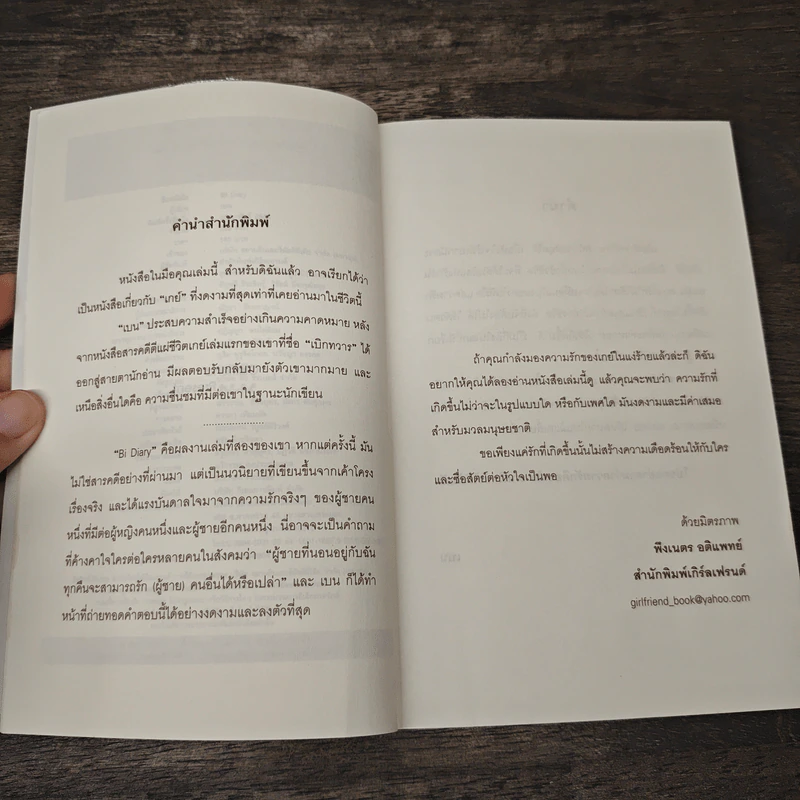 คำนำสำนักพิมพ์
หนังสือในมือคุณเล่มนี้ สำหรับดิฉันแล้ว อาจเรียกได้ว่า
เป็นหนังสือเกี่ยวกับ "เกย์" ที่งดงามที่สุดเท่าที่เคยอ่านมาในชีวิตนี้
"เบน" ประสบความสำเร็จอย่างเกินความคาดหมาย หลัง
จากหนังสือสารคดีตีแผ่ชีวิตเกย์เล่มแรกของเขาที่ชื่อ "เบิกทวาร" ได้
ออกสู่สายตานักอ่าน มีผลตอบรับกลับมายังตัวเขามากมาย และ
เหนือสิ่งอื่นใดคือ ความชื่นชมที่มีต่อเขาในฐานะนักเขียน
........................
"Bi Diary" คือผลงานเล่มที่สองของเขา หากแต่ครั้งนี้ มัน
ไม่ใช่สารคดีอย่างที่ผ่านมา แต่เป็นนวนิยายที่เขียนขึ้นจากเค้าโครง
เรื่องจริง และได้แรงบันดาลใจมาจากความรักจริงๆ ของผู้ชายคน
หนึ่งที่มีต่อผู้หญิงคนหนึ่งและผู้ชายอีกคนหนึ่ง นี่อาจจะเป็นคำถาม
ที่ค้างคาใจใครต่อใครหลายคนในสังคมว่า "ผู้ชายที่นอนอยู่กับฉัน
ทุกคืนจะสามารถรัก (ผู้ชาย) คนอื่นได้หรือเปล่า" และ เบน ก็ได้ทำ
หน้าที่ถ่ายทอดคำตอบนี้ได้อย่างงดงามและลงตัวที่สุด
ถ้าคุณกำลังมองความรักของเกย์ในแง่ร้ายแล้วล่ะก็ ดิฉัน
อยากให้คุณได้ลองอ่านหนังสือเล่มนี้ดู แล้วคุณจะพบว่า ความรักที่
เกิดขึ้นไม่ว่าจะในรูปแบบใด หรือกับเพศใด มันงดงามและมีค่าเสมอ
สำหรับมวลมนุษยชาติ
ขอเพียงแค่รักที่เกิดขึ้นนั้นไม่สร้างความเดือดร้อนให้กับใคร
และซื่อสัตย์ต่อหัวใจเป็นพอ
ด้วยมิตรภาพ
พึงเนตร อติแพทย์
สำนักพิมพ์เกิร์ลเฟรนด์
girlfriend_book@yahoo.com